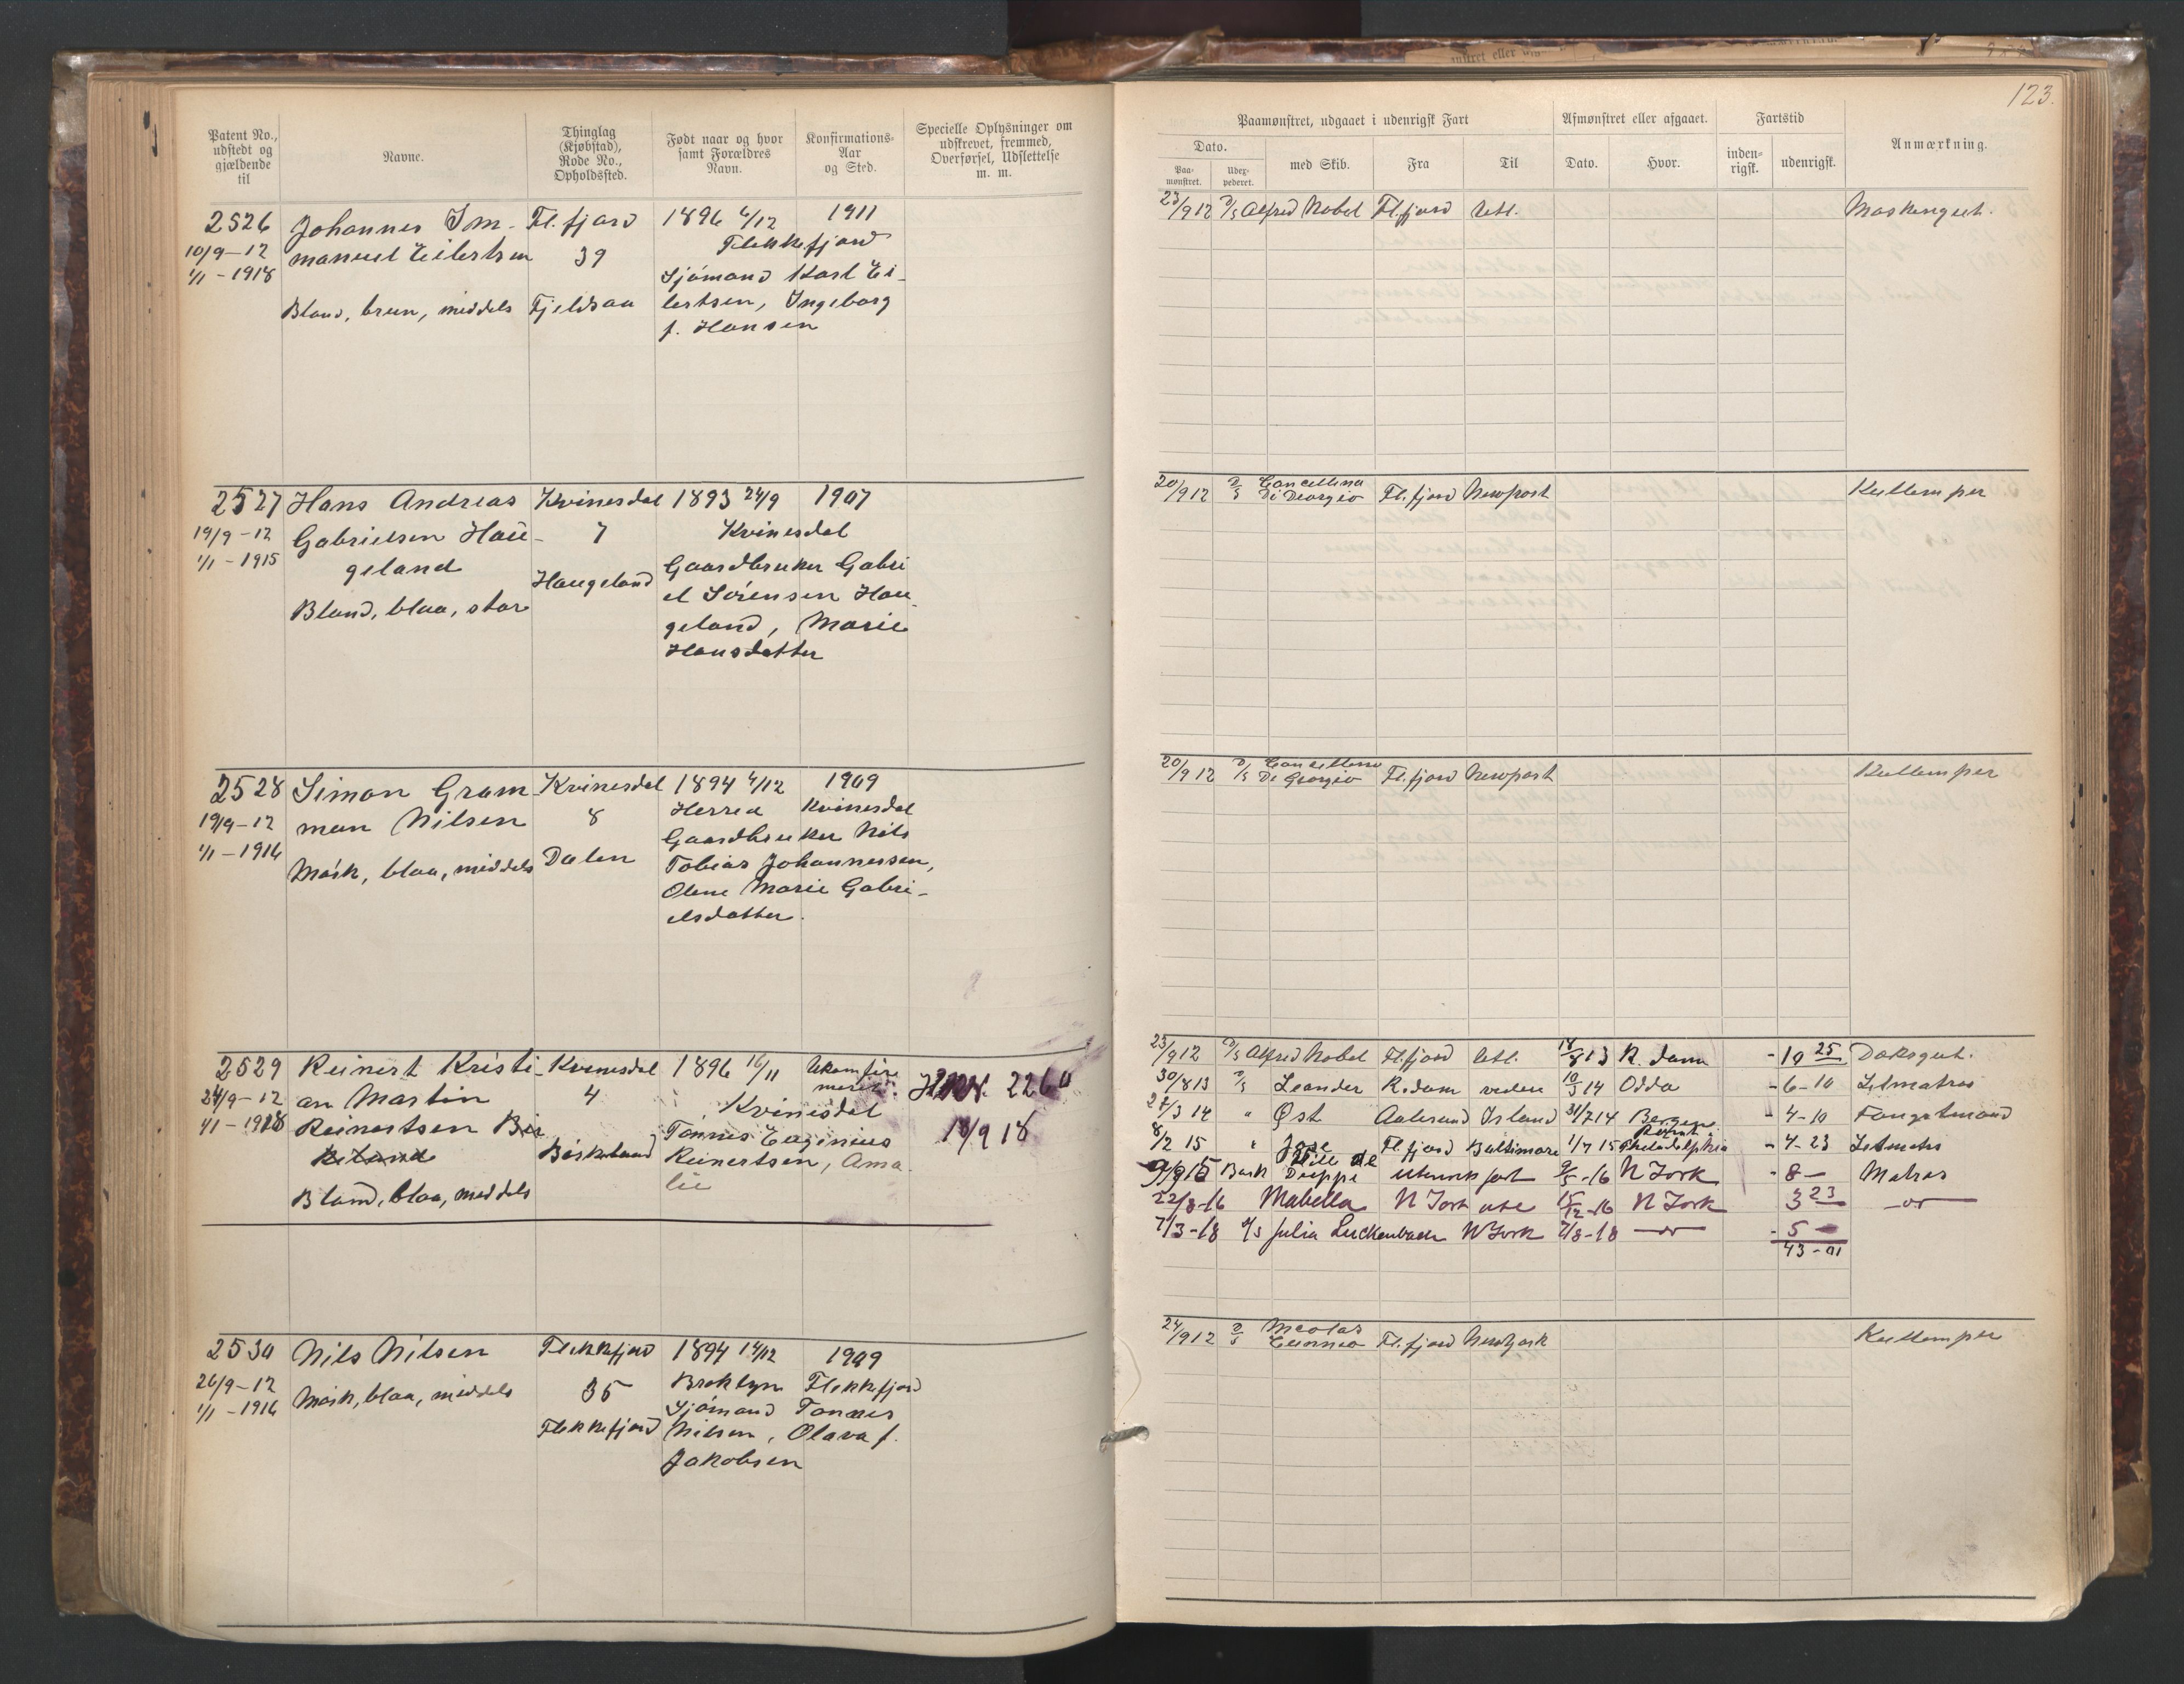 123.
Patent No., udstedt og gjældende til
Navne.
Thinglag (Kjøbstad), Rode No., Opholdssted.
Født naar og hvor samt Forældres Navn.
Konfirmations-Aar og Sted.
Specielle Oplysninger om udskrevet, fremmed, Overførsel, Udslettelse m. m.
Paamønstret, udgaaet i udenrigsk Fart
Afmønstret eller afgaaet.
Fartstid
Anmærkning.
Dato.
med Skib.
Fra
Til
Dato.
Hvor.
inden-rigsk.
udenrigsk.
Paa-mønstret.
Udex-pederet.
2526 Johannes Im- Fl.fjord 1896 4/12 1911
10/9-12 manuel Eilertsen 39 Flekkefjord
1/1-1918 Sjómand Karl Ei-
Blond, brun, middels Fjeldsaa lertsen, Ingeborg
f. Hansen
23/9 12 D/S Alfred Nobel Fl.fjord Maskingut.
2527 Hans Andreas Kvinesdal 1893 24/9 1907
19/9-12 Gabrielsen Hau- 7 Kvinesdal
1/1-1915 geland Haugeland Gaardbruker Gabri
Blond, blaa, stor el Sórensen Hau-
geland, Marie
Hansdatter
20/9 12 D/S Di Georgio Fl.fjord Newport Kullemper
2528 Simon Gram- Kvinesdal 1894 4/12 1909
19/9-12 man Nilsen 8 Herred Kvinesdal
1/1-1916 Gaardbruker Nils
Mórk, blaa, middels Dalen Tobias Johannessen,
Olene Marie Gabri-
elsdatter.
20/9 12 D/S Di Georgio Fl.fjord Newport Kullemper
2529 Reinert Kristi- Kvinesdal 1896 16/11
24/9-12 an Martin 4 Kvinesdal 2260
1/1-1918 Reinertsen Tonnes Euginius 18/9 18
Reinertsen, Ama-
lie
Blond, blaa, middels
23/9 12 D/S Alfred Nobel Fl.fjord 18/8 13 R.dam -10 25 Daksgut.
30/8 13 D/S Leander R.dam verden 10/3 14 Odda -6-10 Letmatros
27/3 14 " Øst Aalesund Island 31/7 14 Bergen -4-10 Fangstmand
8/2 15 " Fl.fjord Baltimore 1/7 15 Philadelphia -4-23 Letmatr
9/9 15 Bark Ville de Dieppe 9/5-16 N York -8- Matros
22/8-16 Mabella N York 15/12-16 N York 3 23
7/3-18 S/S Julia Luckenbach N York 7/8-18 -5-
43-01
2530 Nils Nilsen Flekkefjord 1894 14/12 1909
26/9-12 35 Broklyn Flekkefjord
1/1-1916 Mórk, blaa, middels Sjómand Tonnes
Flekkefjord Nilsen, Olava f.
Jakobsen
24/9 12 D/S Nicolas Cuneo Fl.fjord Newyork Kullemper